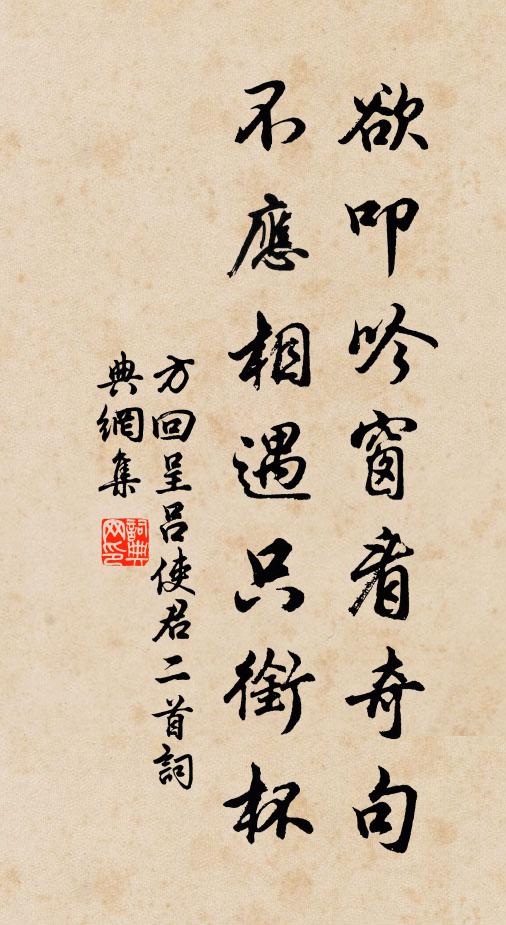 欲叩吟窗看奇句
不應相遇只銜杯
方回呈呂使君二首詞
典網集
詞典網印